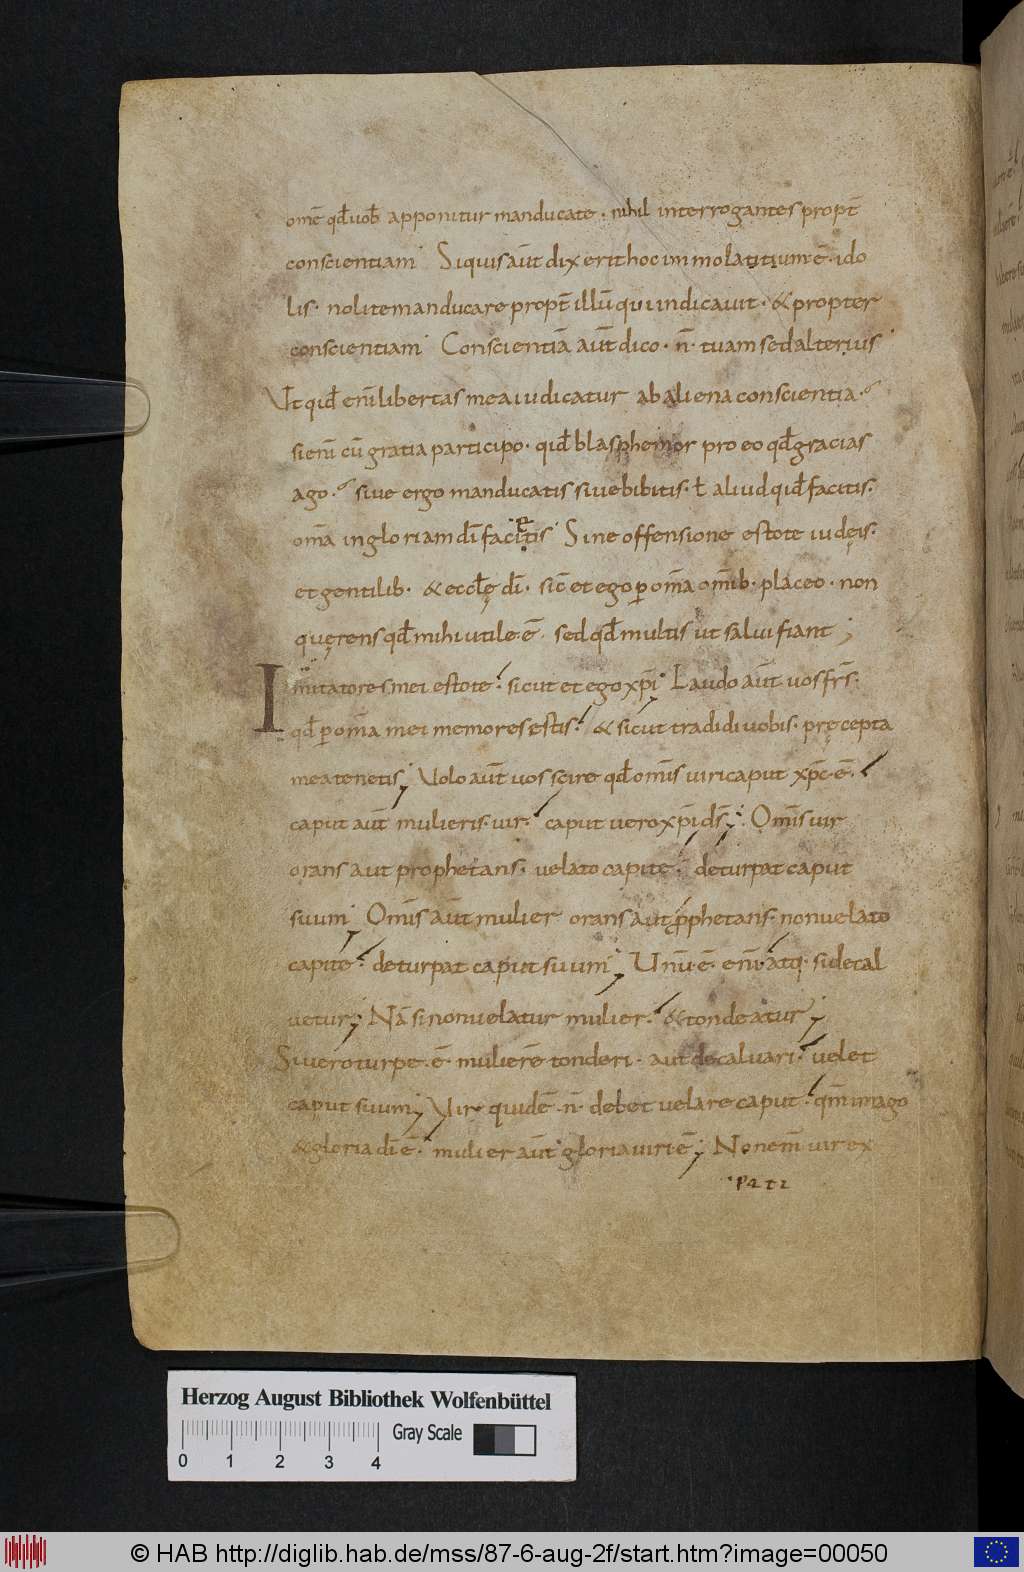 omē qđ vob̄ apponitur manducate · nihil interrogantes propt̄
conscientiam Siquis aūt dixerit hoc immolatitium · ē · ido
lis · nolite manducare propt̄ illū qui indicauit · & propter
conscientiam Conscientiā aūt dico · n̄ · tuam sed alterius
Vt qid enī libertas mea iudicatur ab aliena conscientia ·
si enī cū gratia participo · qid blasphemor pro eo qđ gracias
ago · siue ergo manducatis siue bibitis · ł aliud qid facitis ·
om̄a in gloriam dī facitis Sine offensione estote iudęis ·
et gentilib · & eccłę dī · sic̄ et ego p om̄a om̄ib · placeo · non
quęrens qđ mihi utile · ē · sed qđ multis ut salui fiant ;
Imitatores mei estote · sicut et ego xp̄i Laudo aūt uos fr̄s ·
qđ p om̄a mei memores estis · & sicut tradidi uobis · pręcepta
mea tenetis ; Uolo aūt uos scire qđ om̄is uiri caput xp̄c · ē ·
caput aūt mulieris · uir · caput uero xp̄i d̄s ; Om̄is uir
orans aut prophetans · uelato capite · deturpat caput
suum Om̄is aūt mulier orans aut pphetans · non uelato
capite · deturpat caput suum ; Unū · ē · enī · atq · si decal
uetur ; Nā si non uelatur mulier · & tondeatur ;
Si uero turpe · ē · mulierē tonderi · aut decaluari · uelet
caput suum ; Uir quidē · n̄ · debet uelare caput · qm̄ imago
& gloria dī ē · mulier aūt gloria uiri ē ; Non enim uir ex
Herzog August Bibliothek Wolfenbüttel
Gray Scale
0 1 2 3 4
© HAB http://diglib.hab.de/mss/87-6-aug-2f/start.htm?image=00050